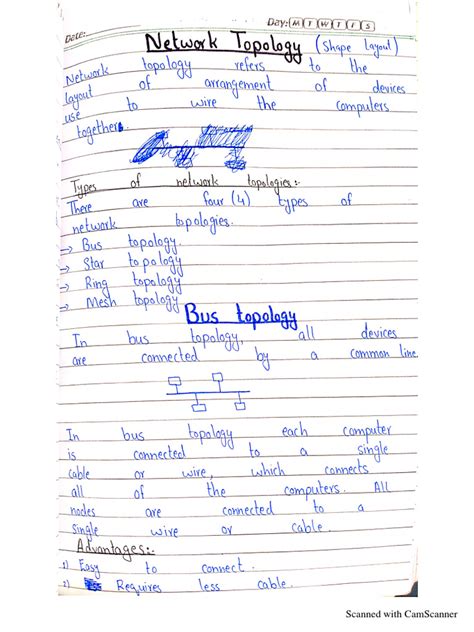 Date:
Day: M T W T F S
Network Topology (Shape Layout)
Network topology refers to the
layout of arrangement of devices
use to wire the computers
together.
Types of network topologies:-
There are four (4) types of
network topologies.
→ Bus topology.
→ Star topology
→ Ring topology
→ Mesh topology
Bus topology
In bus topology, all devices
are connected by a common line.
In bus topology each computer
is connected to a single
cable or wire, which connects
all of the computers. All
nodes are connected to a
single wire or cable.
Advantages:-
1) Easy to connect.
2) Requires less cable.
Scanned with CamScanner